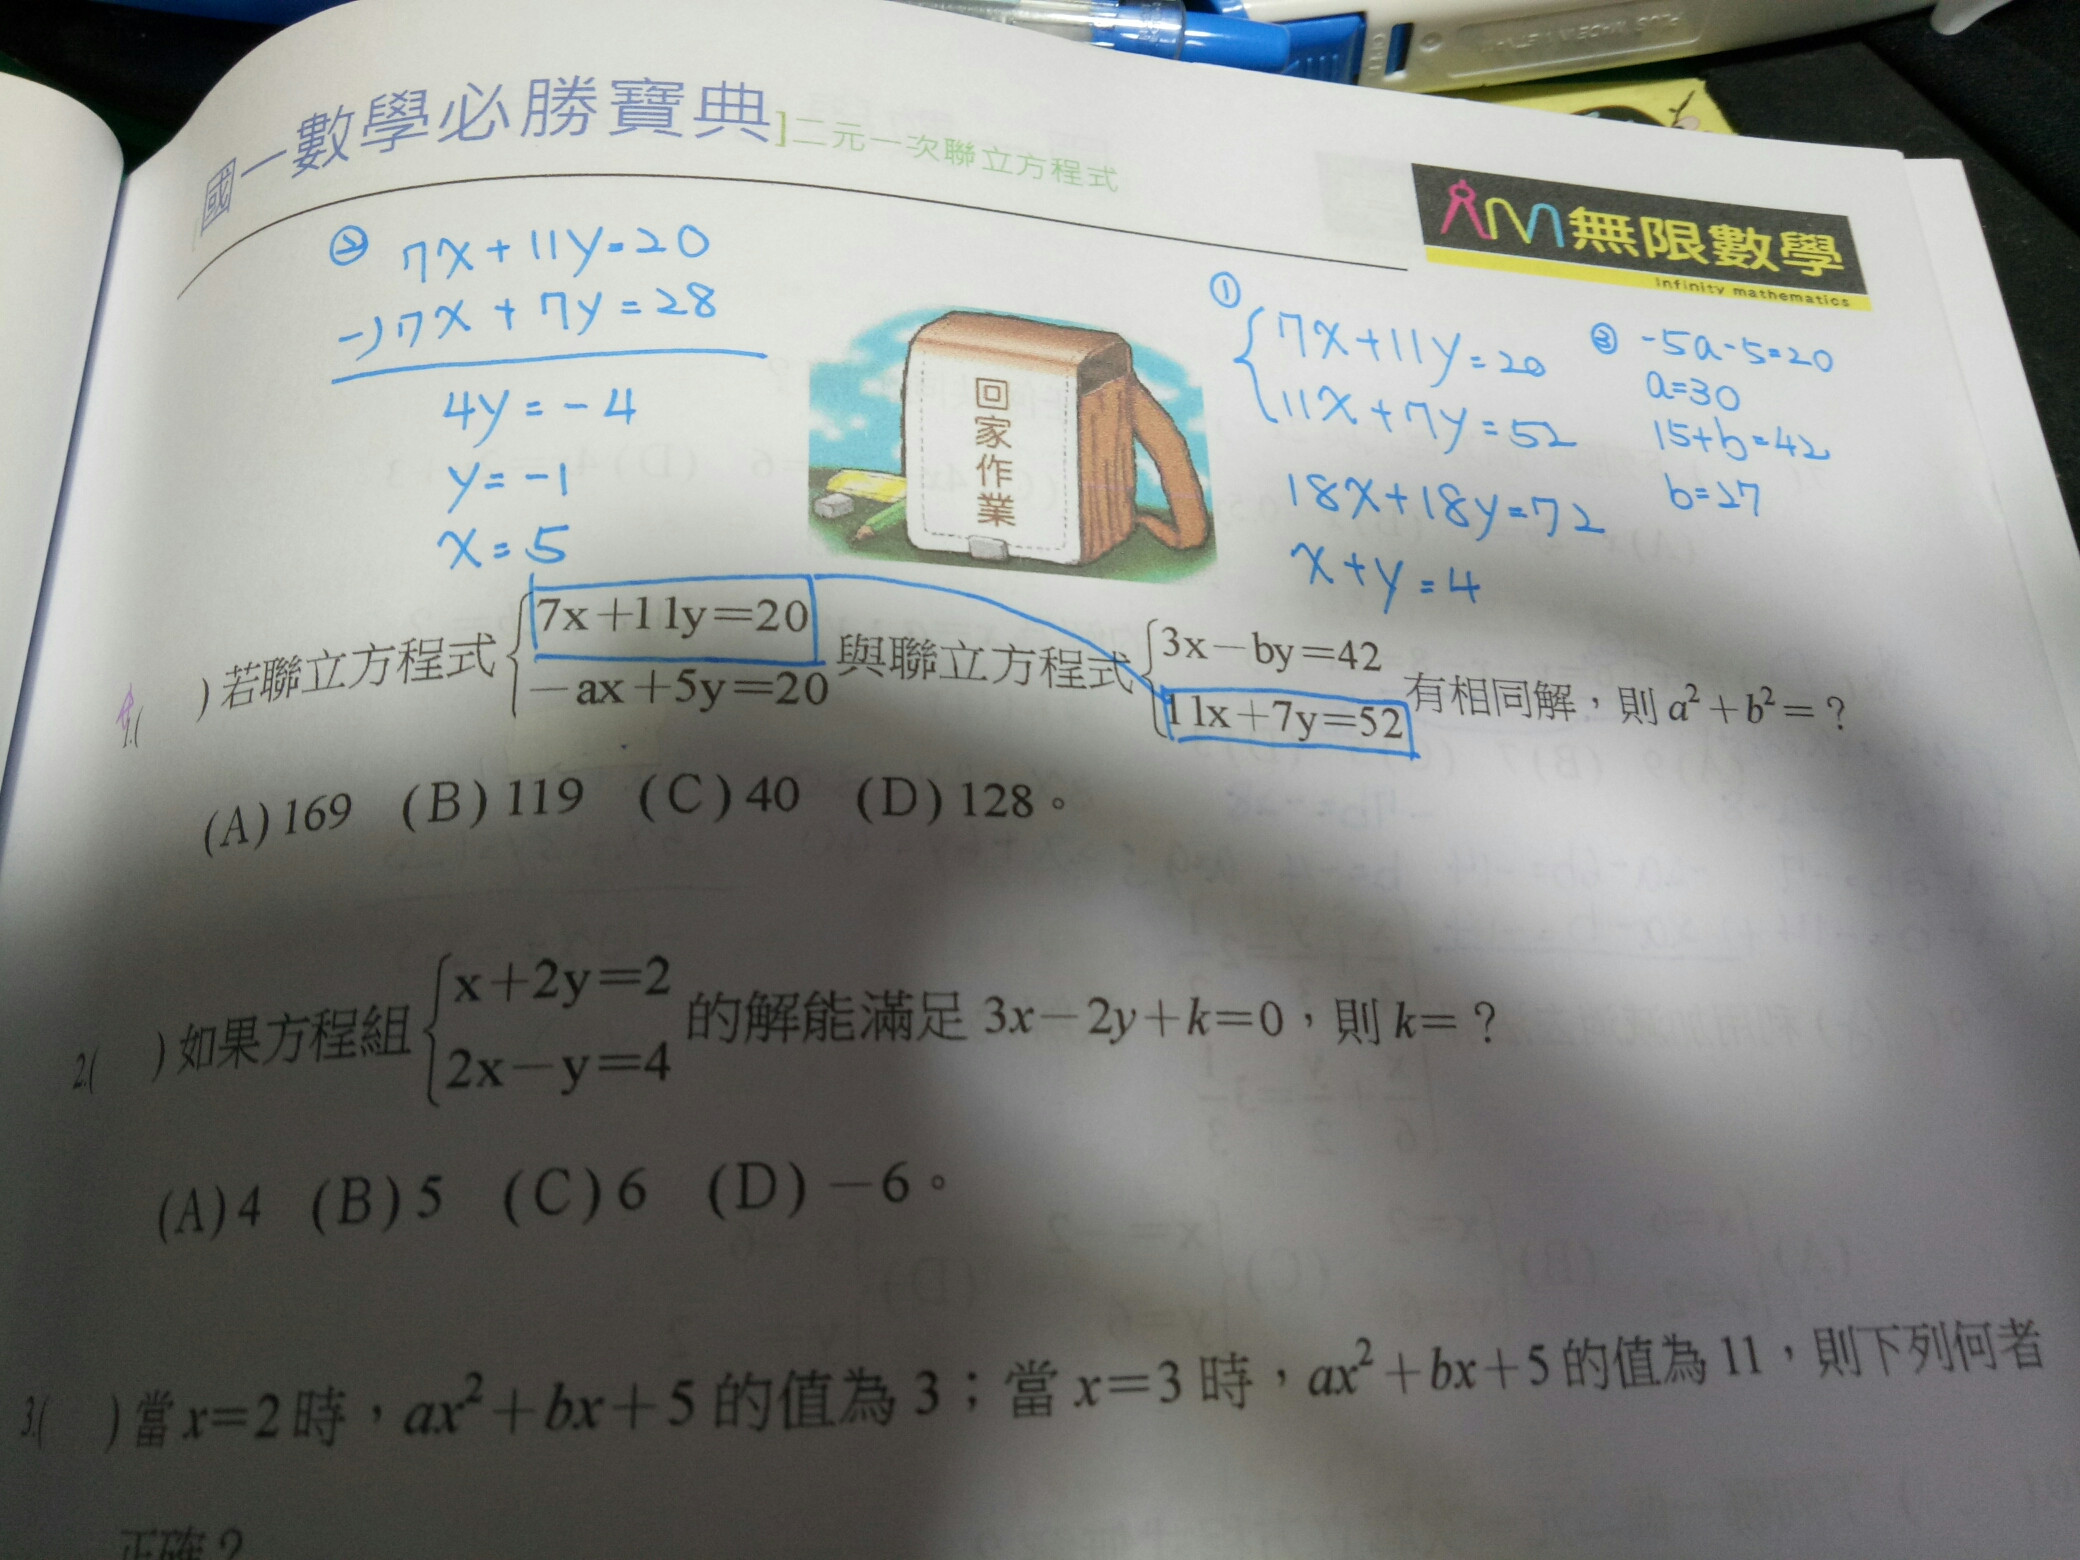 國一數學必勝寶典]二元一次聯立方程式
無限數學
Infinity mathematics
② 7x+11y=20
-)7x+7y=28
4y=-4
y=-1
x=5
回家作業
①
7x+11y=20
11x+7y=52
18x+18y=72
x+y=4
③ -5a-5=20
a=30
15+b=42
b=27
1.( )若聯立方程式{7x+11y=20
-ax+5y=20
與聯立方程式{3x-by=42
11x+7y=52
有相同解,則a²+b²=?
(A)169 (B)119 (C)40 (D)128。
2.( )如果方程組{x+2y=2
2x-y=4
的解能滿足3x-2y+k=0,則k=?
(A)4 (B)5 (C)6 (D)-6。
3.( )當x=2時,ax²+bx+5的值為3;當x=3時,ax²+bx+5的值為11,則下列何者
正確?